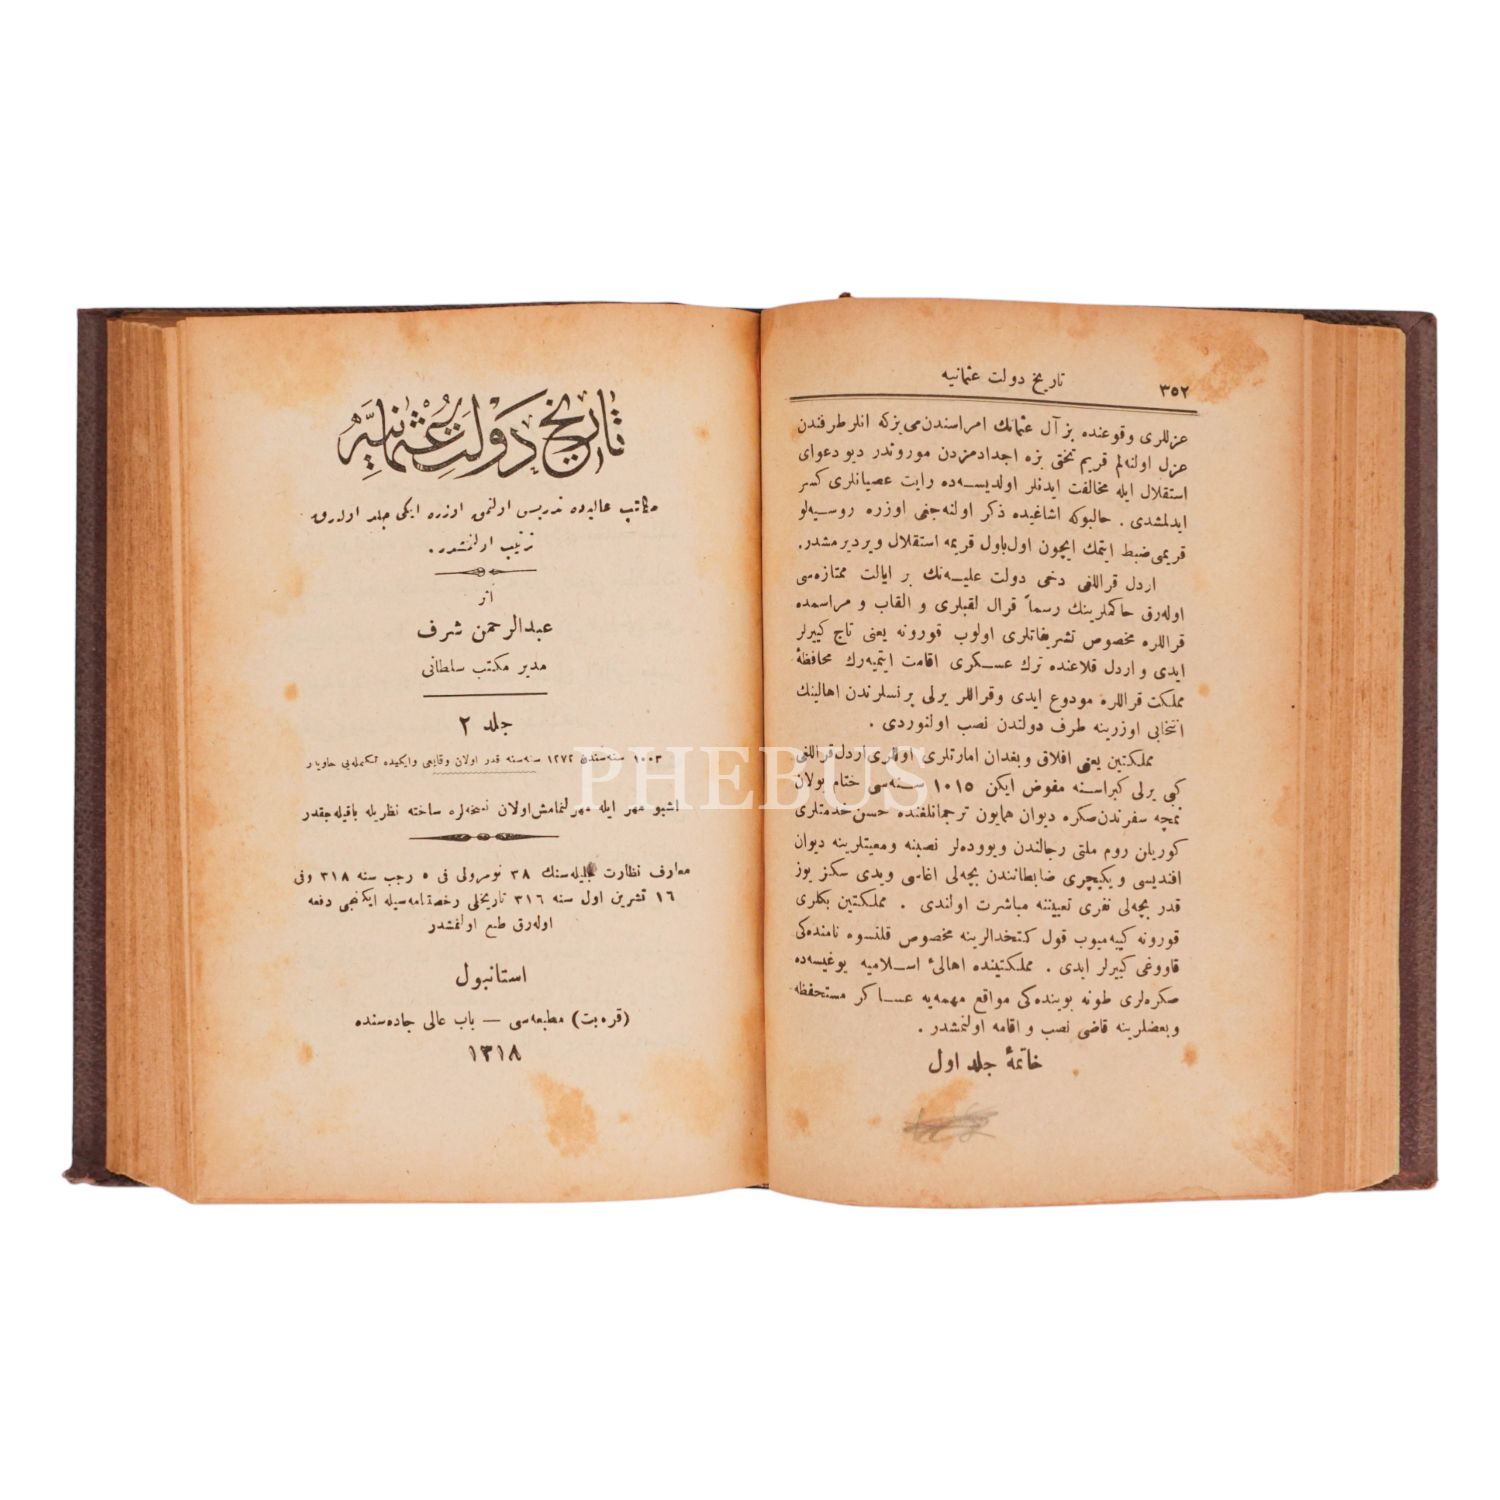 ٣٥٢
تاريخ دولت عثمانيه
عزللرى وقوعنده بز آل عثمانك امراسندن مى يزكه انلر طرفندن
عزل اولنه لم قريم تختى بزه اجدادمزدن موروثدر ديو دعواى
استقلال ايله مخالفت ايدنلر اولديسه ده رايت عصيانلرى كسر
ايدلمشدى . حالبوكه اشاغيده ذكر اولنه جغى اوزره روسيه لو
قريمى ضبط ايتمك ايچون اول باول قريمه استقلال ويرديرمشدر.
اردل قراللغى دخى دولت عليه نك بر ايالت ممتازه سى
اوله رق حاكملرينك رسماً قرال لقبلرى و القاب و مراسمده
قراللره مخصوص تشريفاتلرى اولوب قورونه يعنى تاج كييرلر
ايدى و اردل قلاعنده ترك عسكرى اقامت ايتميه رك محافظهٔ
مملكت قراللره مودوع ايدى وقراللر يرلى پرنسلرندن اهالينك
انتخابى اوزرينه طرف دولتدن نصب اولنوردى .
مملكتين يعنى افلاق وبغدان امارتلرى اوللرى اردل قراللغى
كبى يرلى كبراسنه مفوض ايكن ١٠١٥ سنه سى ختام بولان
نمچه سفرندن صكره ديوان همايون ترجمانلغنده حسن خدمتلرى
كوريلن روم ملتى رجالندن ويووده لر نصبنه ومعيتلرينه ديوان
افنديسى و يكيچرى ضابطانندن بچه لى اغاسى ويدى سكز يوز
قدر بچه لى نفرى تعييننه مباشرت اولندى . مملكتين بكلرى
قورونه كييه ميوب قول كتخدالرينه مخصوص قلنسوه نامنده كى
قاووغى كييرلر ايدى . مملكتينده اهالىٔ اسلاميه يوغيسه ده
صكره لرى طونه بوينده كى مواقع مهمه يه عساكر مستحفظه
وبعضلرينه قاضى نصب و اقامه اولنمشدر .
خاتمهٔ جلد اول
تاريخ دولت عثمانيه
مكاتب عاليه ده تدريس اولنمق اوزره ايكى جلد اوله رق
ترتيب اولنمشدر.
اثر
عبدالرحمن شرف
مدير مكتب سلطانى
جلد ٢
١٠٠٣ سنه سندن ١٢٧٢ سنه سنه قدر اولان وقايعى وايكيده تكمله يى حاويدر
اشبو مهر ايله مهرلنمامش اولان نسخه لره ساخته نظريله باقيله جقدر
معارف نظارت جليله سنك ٣٨ نومرولى فى ٥ رجب سنه ٣١٨ وفى
١٦ تشرين اول سنه ٣١٦ تاريخلى رخصتنامه سيله ايكنجى دفعه
اوله رق طبع اولنمشدر
استانبول
(قره بت) مطبعه سى — باب عالى جاده سنده
١٣١٨
PHEBUS